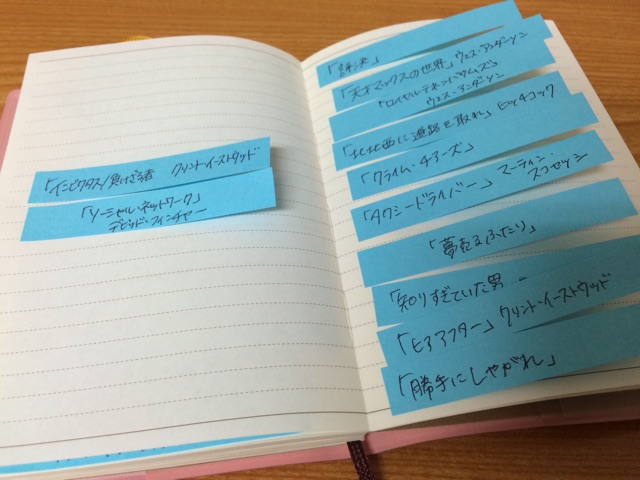 「インビクタス/負けざる者 クリント・イーストウッド
「ソーシャル・ネットワーク」
デビッド・フィンチャー
「天才マックスの世界」ウェス・アンダーソン
「ロイヤルテネンバウムズ」
ウェス・アンダーソン
「北北西に進路を取れ」ヒッチコック
「クライム・チアーズ」
「タクシードライバー」マーティン・
スコセッシ
「夢売るふたり」
「知りすぎていた男
「ヒアアフター」クリント・イーストウッド
「勝手にしやがれ」